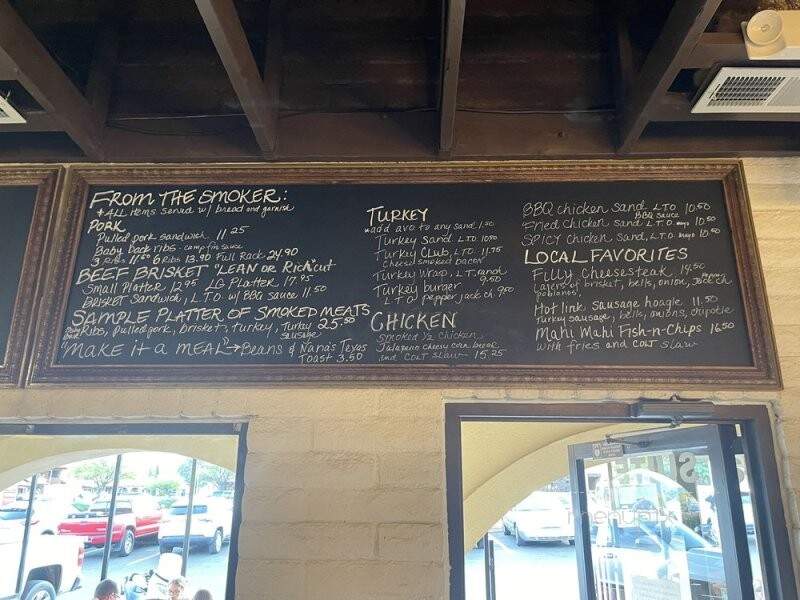 FROM THE SMOKER:
* ALL Items served w/ bread and garnish
PORK
Pulled pork sandwich 11.25
Baby back ribs - campfire sauce
3 Ribs 11.50 6 Ribs 13.90 Full Rack 24.90
BEEF BRISKET "LEAN OR RICH" cut
Small Platter 12.95 LG Platter 17.95
BRISKET Sandwich, L.T.O w/ BBQ sauce 11.50
SAMPLE PLATTER OF SMOKED MEATS
Baby back Ribs, Pulled pork, brisket, turkey, Turkey sausage 25.50
"MAKE it A MEAL" → Beans & Nana's Texas
Toast 3.50
TURKEY
*add avo to any sand 1.50
Turkey Sand. L.T.O. 10.50
Turkey Club, L.T.O. 11.75
Cheese, smoked bacon
Turkey Wrap, L.T, ranch
9.50
Turkey burger
L.T.O pepper jack ch. 9.00
CHICKEN
Smoked ½ chicken
Jalapeno cheesy corn bread
and COLT SLAW 15.25
BBQ chicken Sand. L.T.O 10.50
BBQ sauce
Fried chicken Sand L.T.O. mayo 10.50
SPICY chicken Sand, L.T.O. mayo 10.50
LOCAL FAVORITES
Filly Cheesesteak 14.50
Layers of brisket, bells, onion, pepper Jack ch
poblanos,
Hot link Sausage hoagie 11.50
Turkey Sausage, bells, onions, chipotle
Mahi Mahi Fish-n-Chips 16.50
with fries and COLT slaw